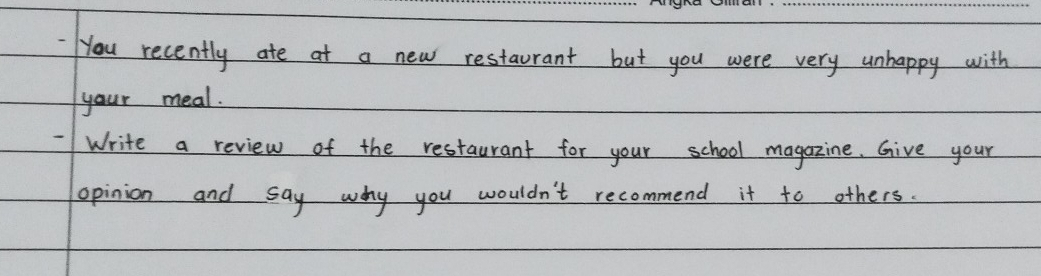 Angka Giliran :
- You recently ate at a new restaurant but you were very unhappy with
your meal.
- Write a review of the restaurant for your school magazine. Give your
opinion and say why you wouldn't recommend it to others.